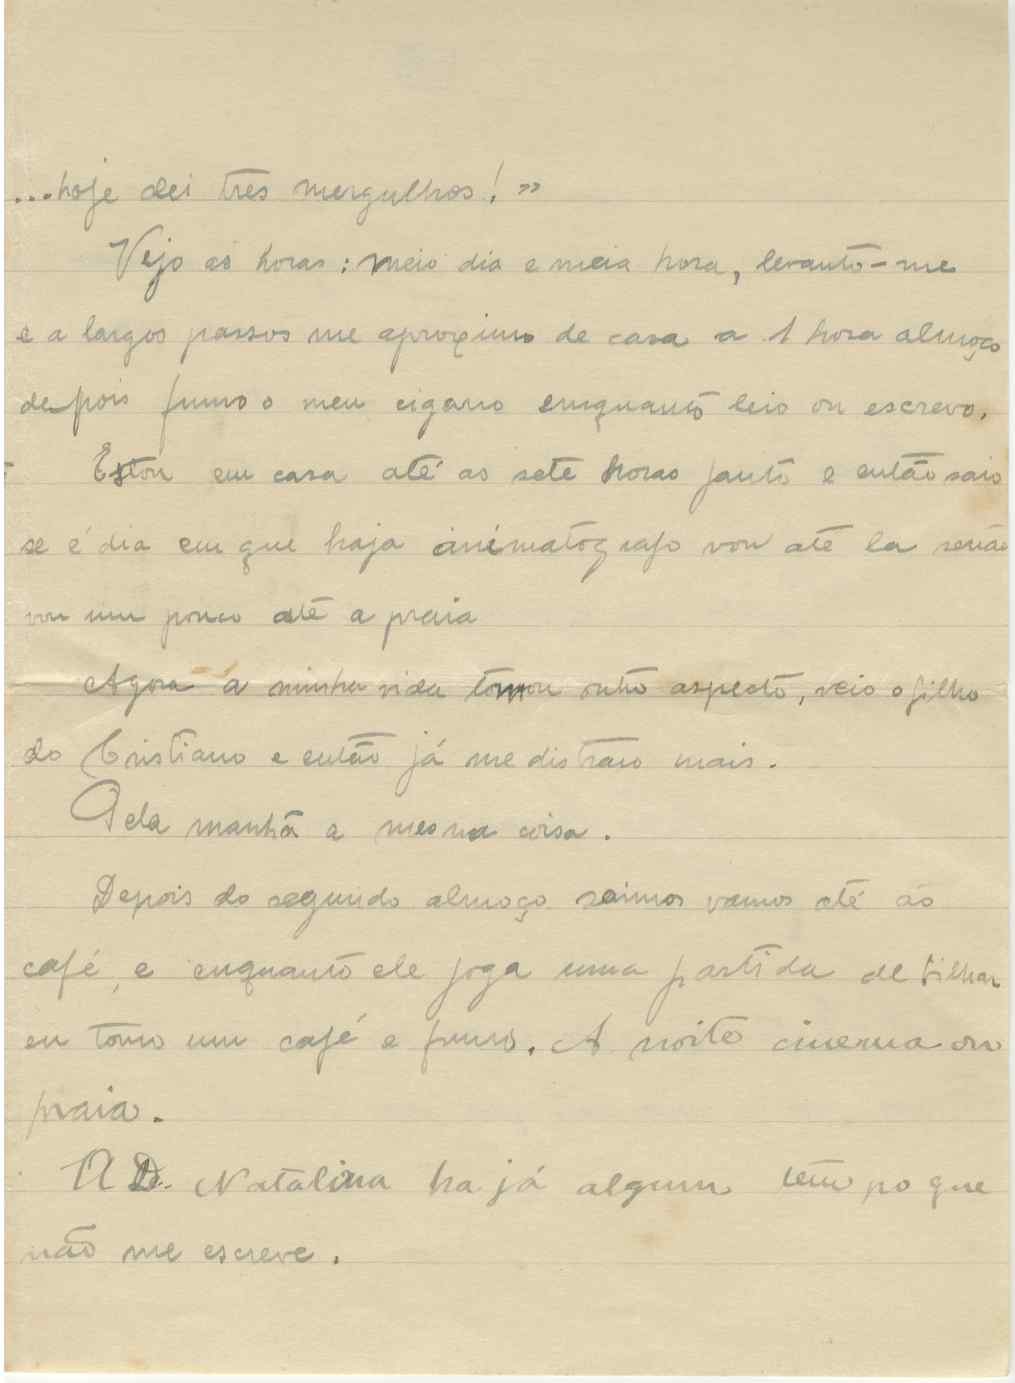 ...hoje dei tres mergulhos! »
Vejo as horas: meio dia e meia hora, levanto-me
e a largos passos me aproximo de casa a 1 hora almoço
depois fumo o meu cigarro emquanto leio ou escrevo.
Estou em casa até as sete horas janto e então saio
se é dia em que haja animatografo vou até la senão
vou um pouco até a praia
Agora a minha vida tomou outro aspecto, veio o filho
do Cristiano e então já me distraio mais.
Pela manhã a mesma coisa.
Depois do segundo almoço saimos vamos até ao
café, e enquanto ele joga uma partida de bilhar
eu tomo um café e fumo. A noite cinema ou
praia.
A D. Natalina ha já algum tempo que
não me escreve.